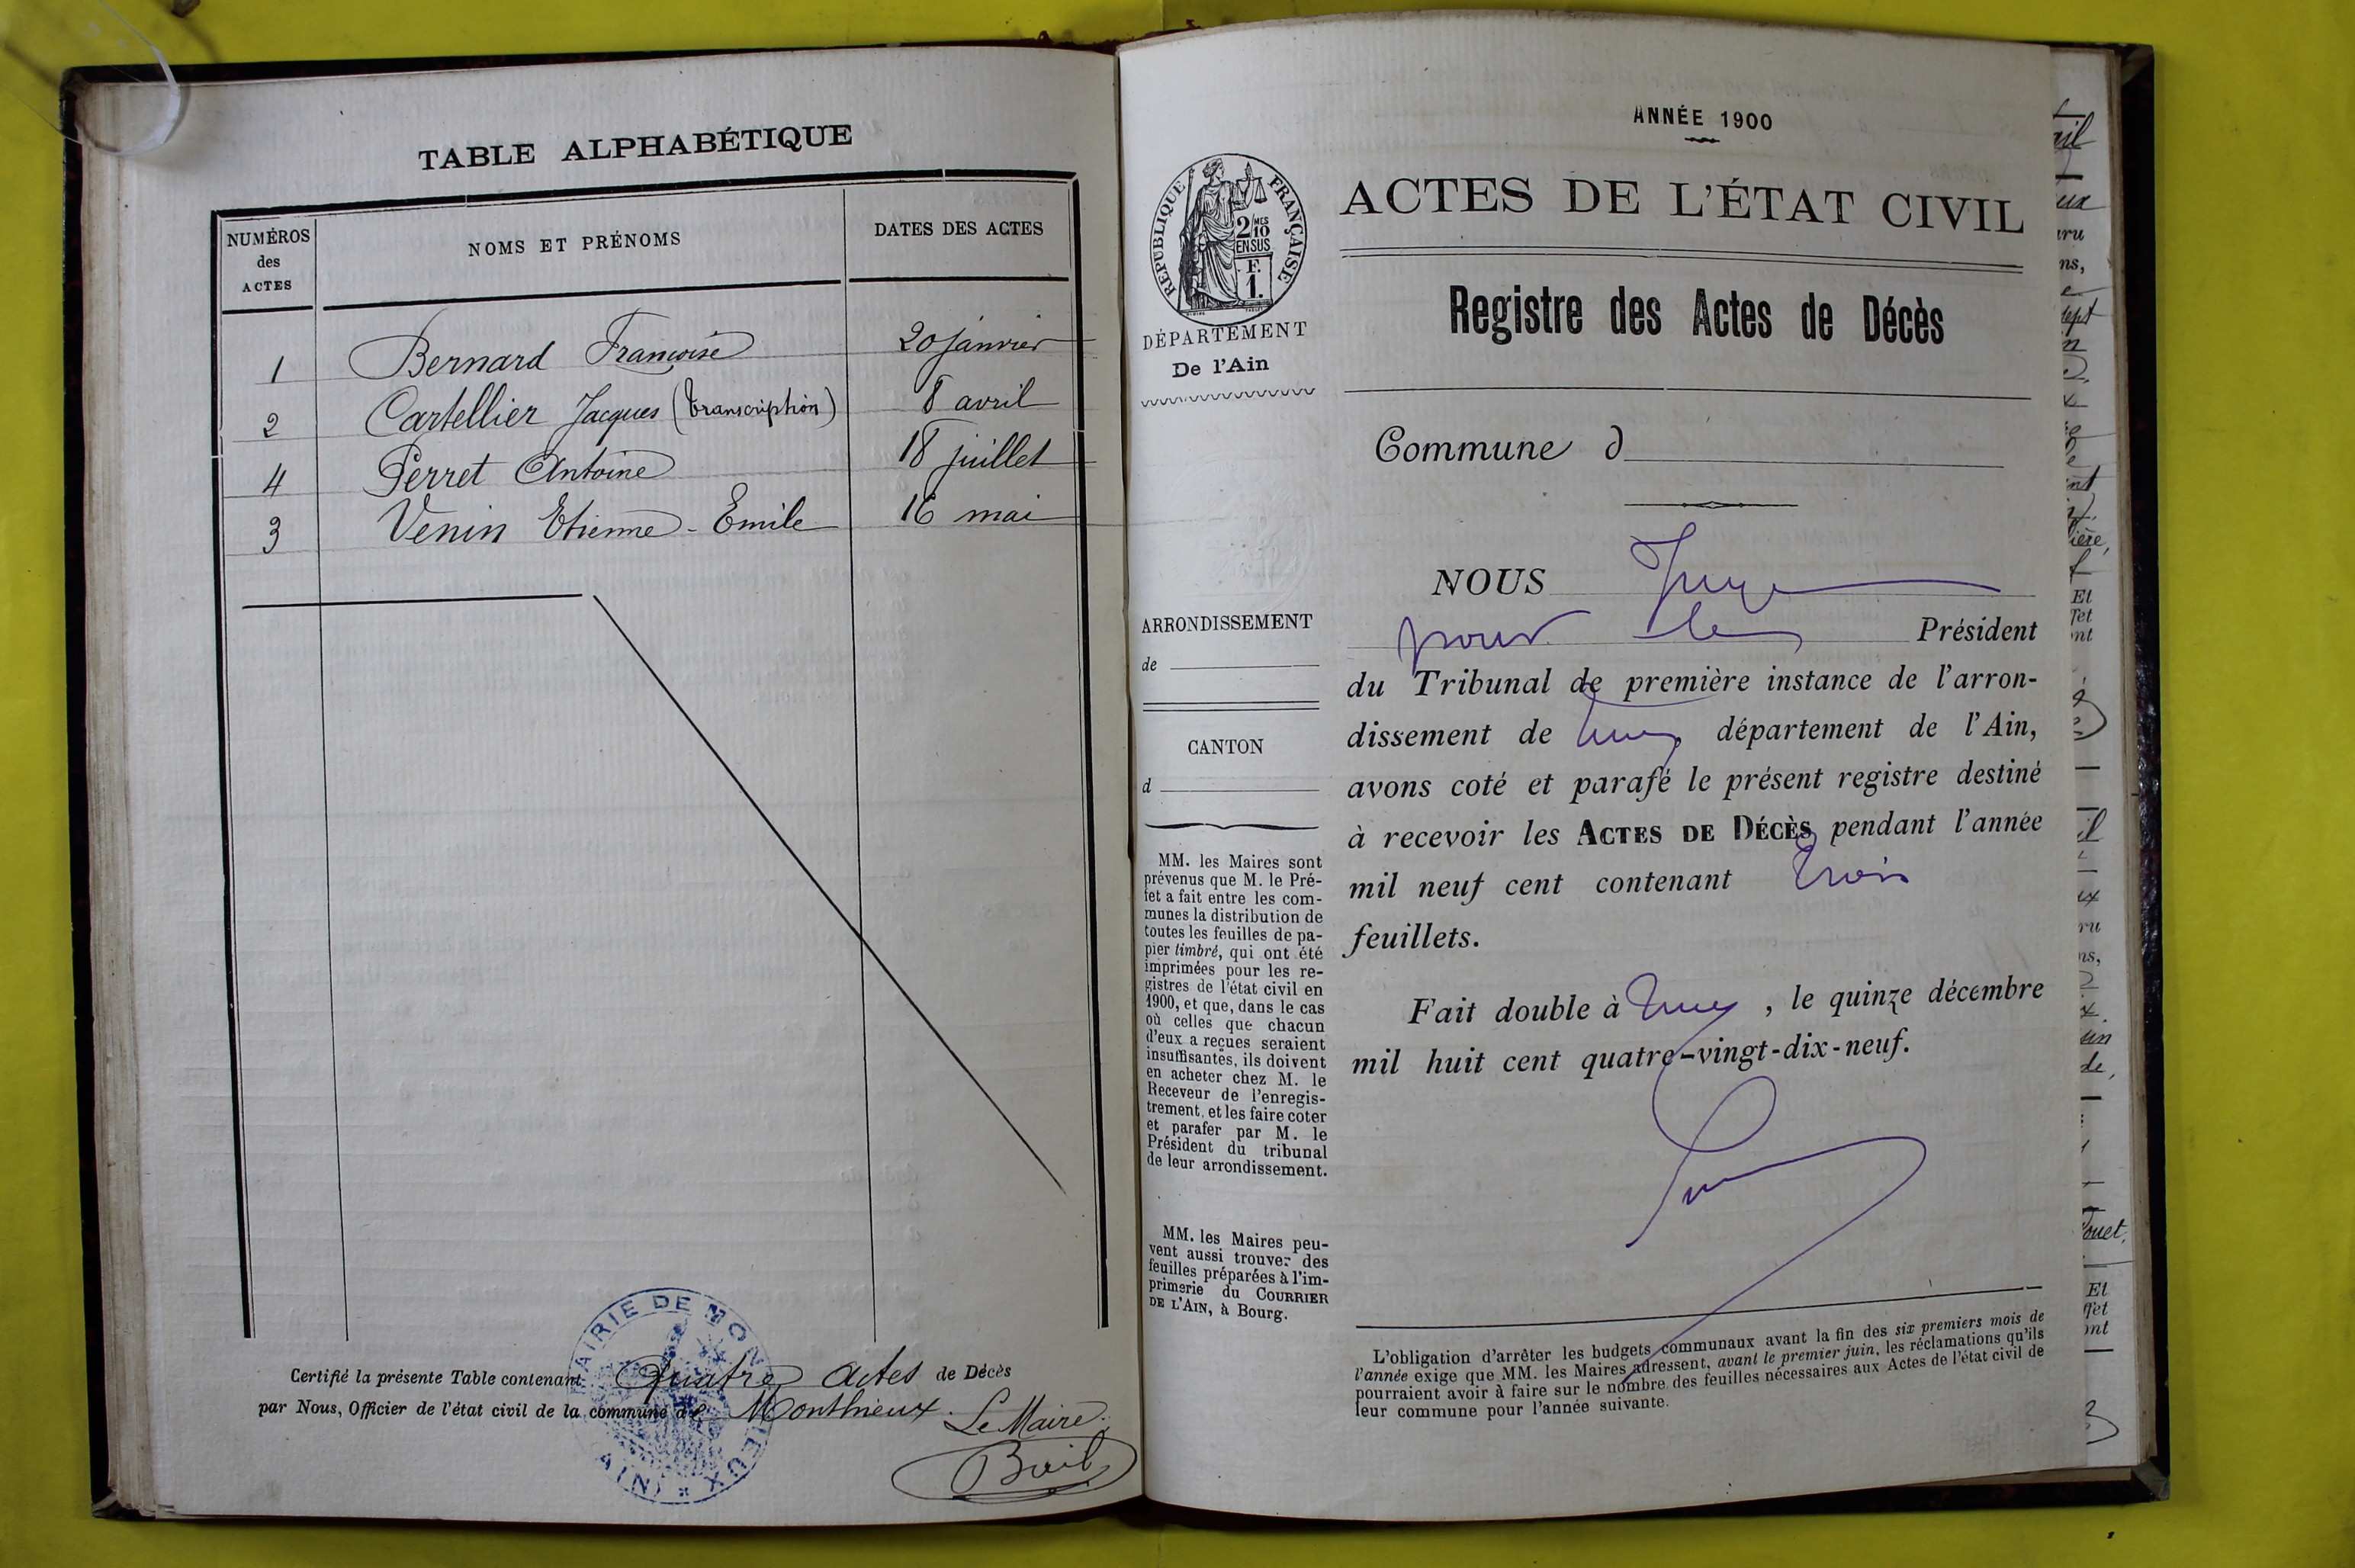 TABLE ALPHABÉTIQUE
NUMÉROS
des
ACTES
NOMS ET PRÉNOMS
DATES DES ACTES
1 Bernard Françoise 20 janvier
2 Cartellier Jacques (transcription) 8 avril
4 Perret Antoine 18 juillet
3 Venin Etienne-Emile 16 mai
Certifié la présente Table contenant Quatre actes de Décès
par Nous, Officier de l'état civil de la commune de Monthieux.
Le Maire
MAIRIE DE MONTHIEUX * (AIN) *
ANNÉE 1900
RÉPUBLIQUE FRANÇAISE
2 MES
10
EN SUS
F.
1.
DÉPARTEMENT
De l'Ain
ARRONDISSEMENT
de
CANTON
d
MM. les Maires sont
prévenus que M. le Pré-
fet a fait entre les com-
munes la distribution de
toutes les feuilles de pa-
pier timbré, qui ont été
imprimées pour les re-
gistres de l'état civil en
1900, et que, dans le cas
où celles que chacun
d'eux a reçues seraient
insuffisantes, ils doivent
en acheter chez M. le
Receveur de l'enregis-
trement, et les faire coter
et parafer par M. le
Président du tribunal
de leur arrondissement.
MM. les Maires peu-
vent aussi trouver des
feuilles préparées à l'im-
primerie du COURRIER
DE L'AIN, à Bourg.
ACTES DE L'ÉTAT CIVIL
Registre des Actes de Décès
Commune d
NOUS Juge
pour le Président
du Tribunal de première instance de l'arron-
dissement de département de l'Ain,
avons coté et parafé le présent registre destiné
à recevoir les ACTES DE DÉCÈS pendant l'année
mil neuf cent contenant trois
feuillets.
Fait double à , le quinze décembre
mil huit cent quatre-vingt-dix-neuf.
L'obligation d'arrêter les budgets communaux avant la fin des six premiers mois de
l'année exige que MM. les Maires adressent, avant le premier juin, les réclamations qu'ils
pourraient avoir à faire sur le nombre des feuilles nécessaires aux Actes de l'état civil de
leur commune pour l'année suivante.